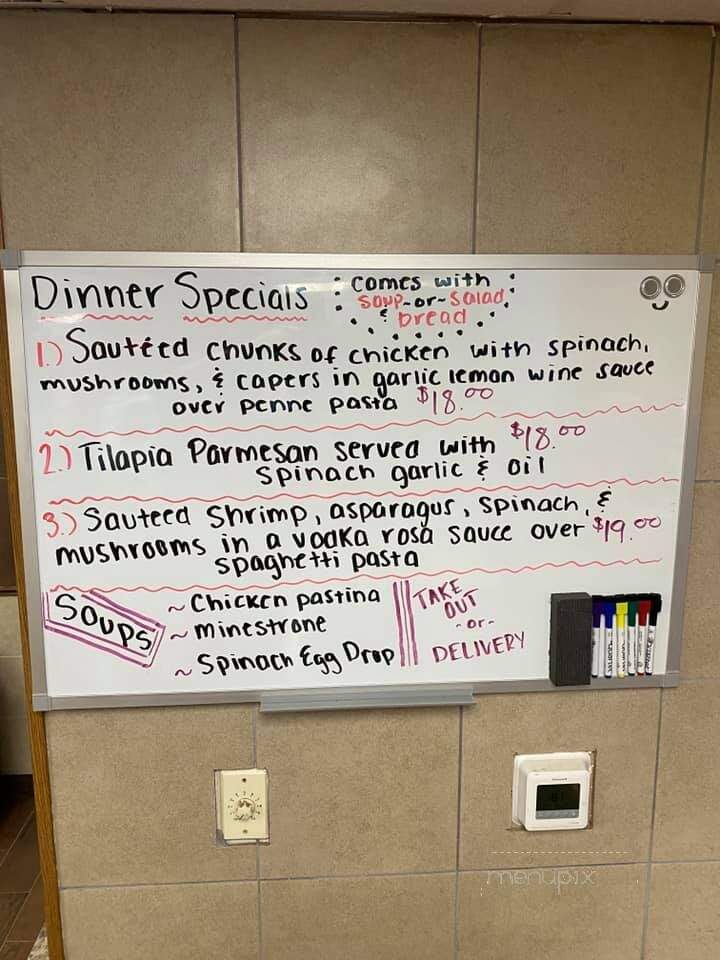 Dinner Specials
comes with
soup-or-salad,
& bread
1.) Sautéed chunks of chicken with spinach,
mushrooms, & capers in garlic lemon wine sauce
over penne pasta $18.00
2.) Tilapia Parmesan served with $18.00
spinach garlic & oil
3.) Sauteed Shrimp, asparagus, spinach, &
mushrooms in a vodka rosa sauce over $19.00
spaghetti pasta
SOUPS
~ Chicken pastina
~ minestrone
~ Spinach Egg Drop
TAKE
OUT
-or-
DELIVERY
menupix